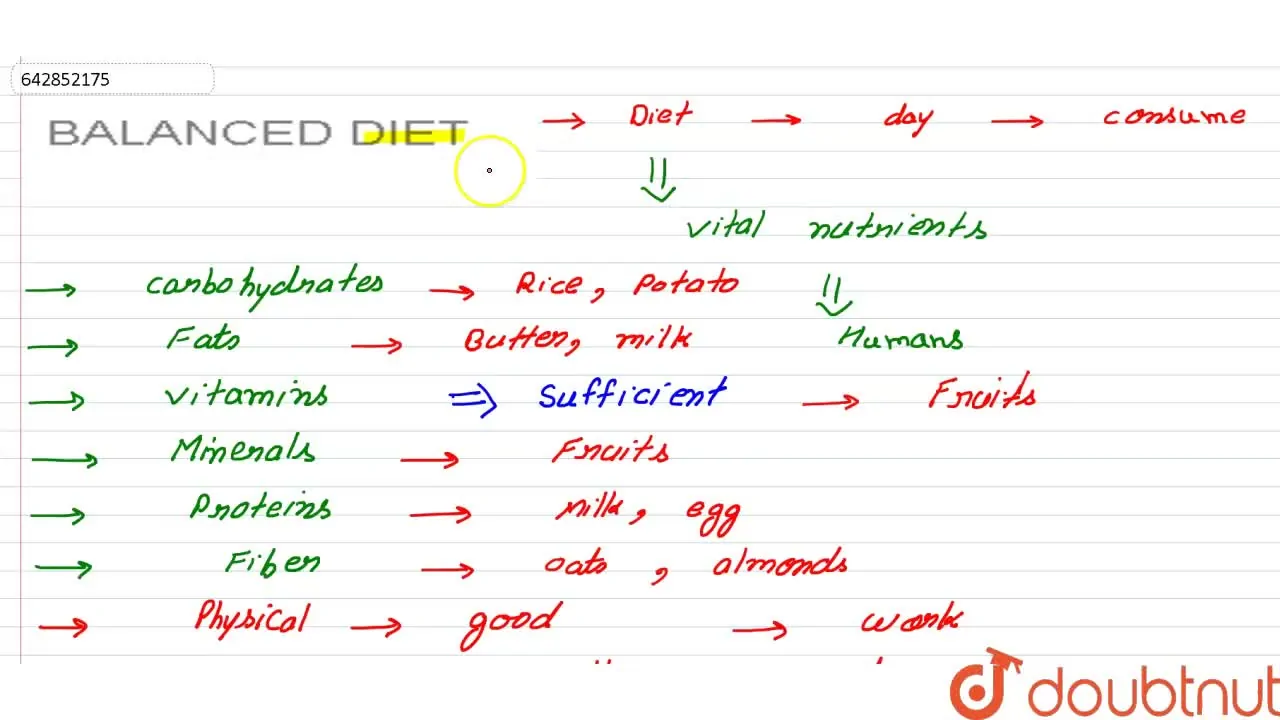 642852175
BALANCED DIET → Diet → day → consume
⇓
vital nutrients
→ carbohydrates → Rice, Potato ⇓
→ Fats → Butter, milk Humans
→ vitamins ⇒ Sufficient → Fruits
→ Minerals → Fruits
→ Proteins → Milk, egg
→ Fiber → oats, almonds
→ Physical → good → work
doubtnut